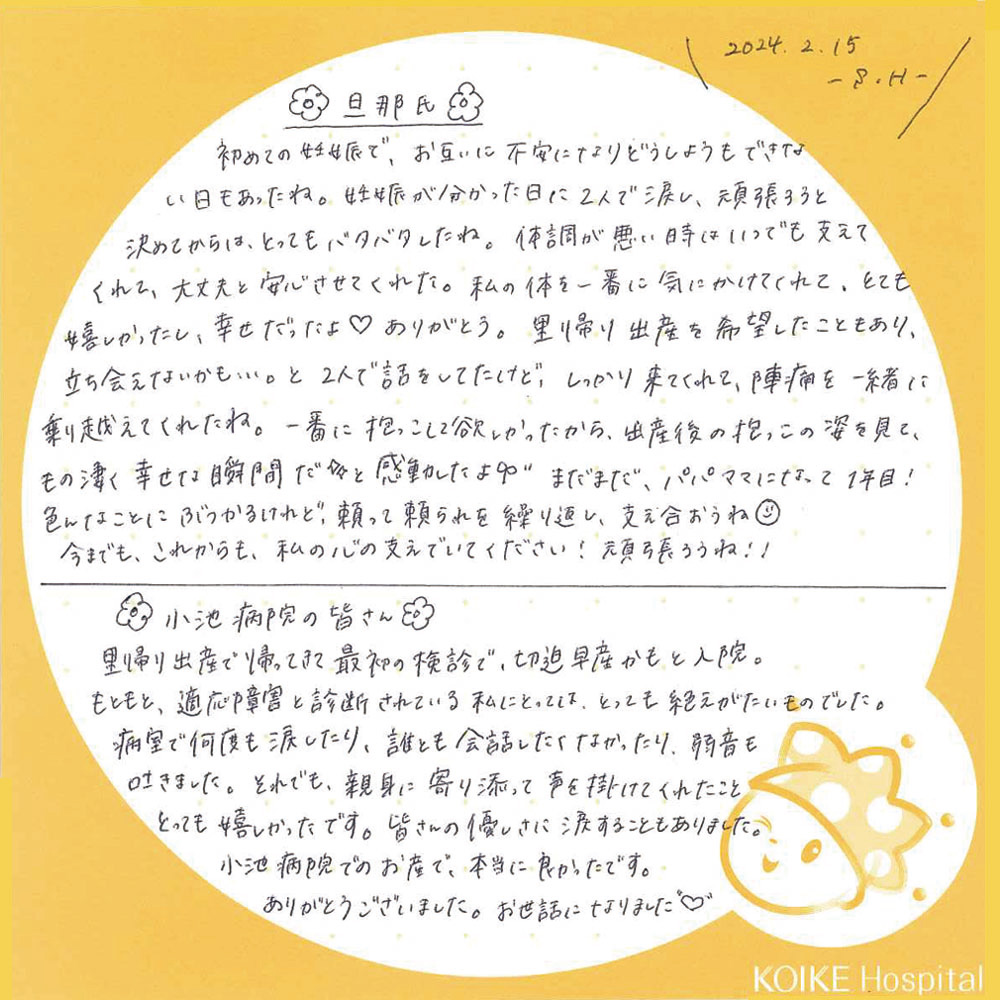 2024. 2. 15
- S.H -
旦那氏
初めての妊娠で、お互いに不安になりどうしようもできな
い日もあったね。妊娠が分かった日に2人で涙し、頑張ろうと
決めてからは、とってもバタバタしたね。体調が悪い時はいつでも支えて
くれて、大丈夫と安心させてくれた。私の体を一番に気にかけてくれて、とても
嬉しかったし、幸せだったよ♡ありがとう。里帰り出産を希望したこともあり、
立ち会えないかも…。と2人で話をしてたけど、しっかり来てくれて、陣痛を一緒に
乗り越えてくれたね。一番に抱っこして欲しかったから、出産後の抱っこの姿を見て、
もの凄く幸せな瞬間だと感動したよ まだまだ、パパママになって1年目!
色んなことにぶつかるけれど、頼って頼られを繰り返し、支え合おうね☺
今までも、これからも、私の心の支えでいてください!頑張ろうね!!
小池病院の皆さん
里帰り出産で帰ってきて最初の検診で、切迫早産かもと入院。
もともと、適応障害と診断されている私にとっては、とっても絶えがたいものでした。
病室で何度も涙したり、誰とも会話したくなかったり、弱音も
吐きました。それでも、親身に寄り添って声を掛けてくれたこと
とっても嬉しかったです。皆さんの優しさに涙することもありました。
小池病院でのお産で、本当に良かったです。
ありがとうございました。お世話になりました♡
KOIKE Hospital